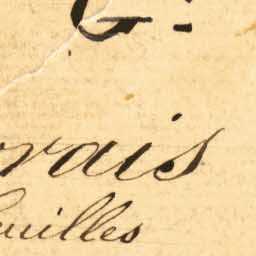 G.
rais
uilles